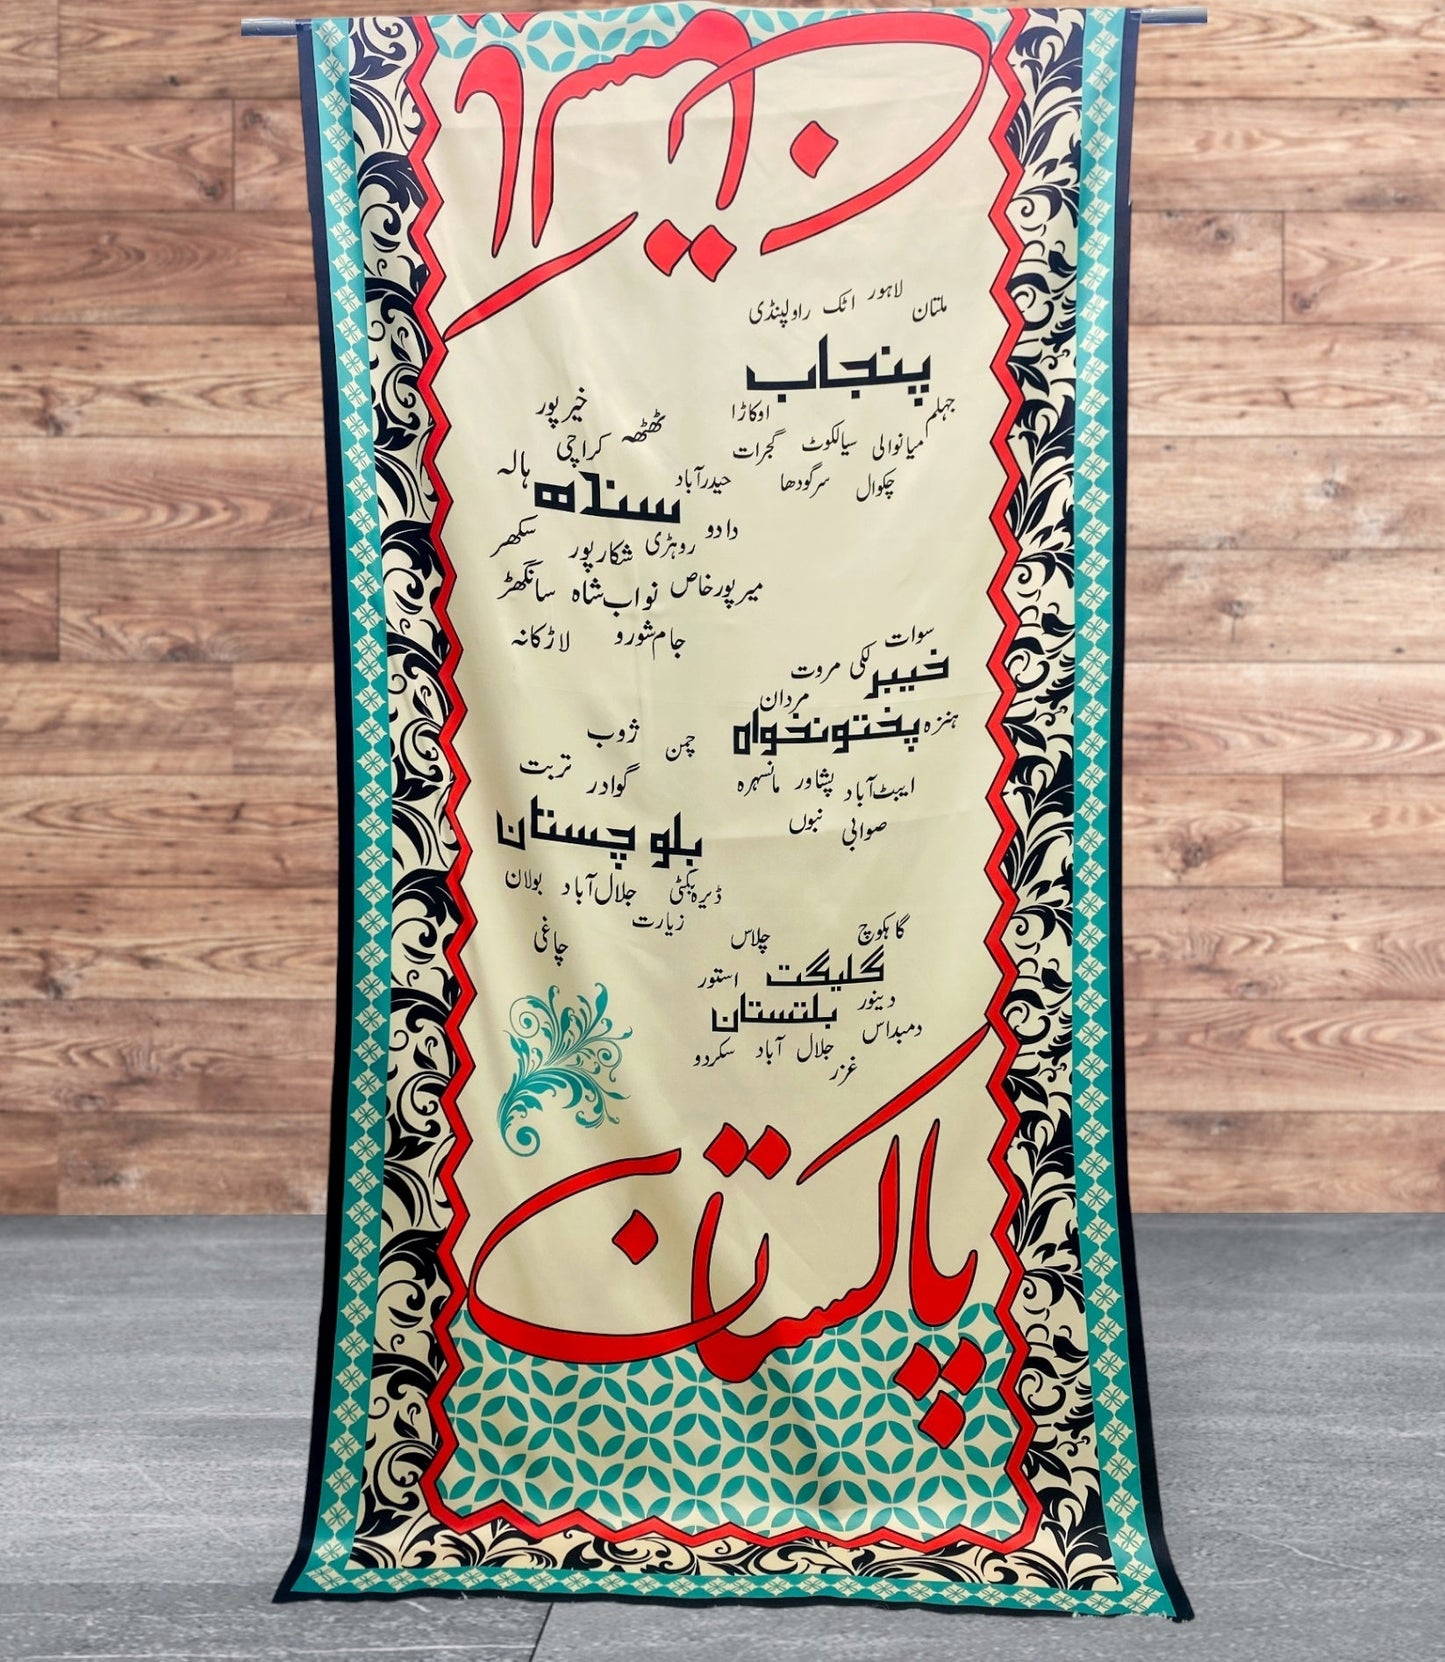 ملتان لاہور اٹک راولپنڈی
پنجاب
جہلم اوکاڑا
میانوالی سیالکوٹ گجرات
چکوال سرگودھا
خیرپور
ٹھٹھہ کراچی ہالہ
حیدرآباد
سندھ
دادو روہڑی شکارپور سکھر
میرپورخاص نوابشاہ سانگھڑ
جامشورو لاڑکانہ
سوات
خیبر لکی مروت
مردان
پختونخواہ
ہنزہ
ایبٹ آباد پشاور مانسہرہ
صوابی نبوں
چمن ژوب
گوادر تربت
بلوچستان
ڈیرہ بگٹی جلال آباد بولان
زیارت چاغی
گاہکوچ چلاس
گلیگت استور
دینور
بلتستان
دمبداس
غزر جلال آباد سکردو
پاکستان